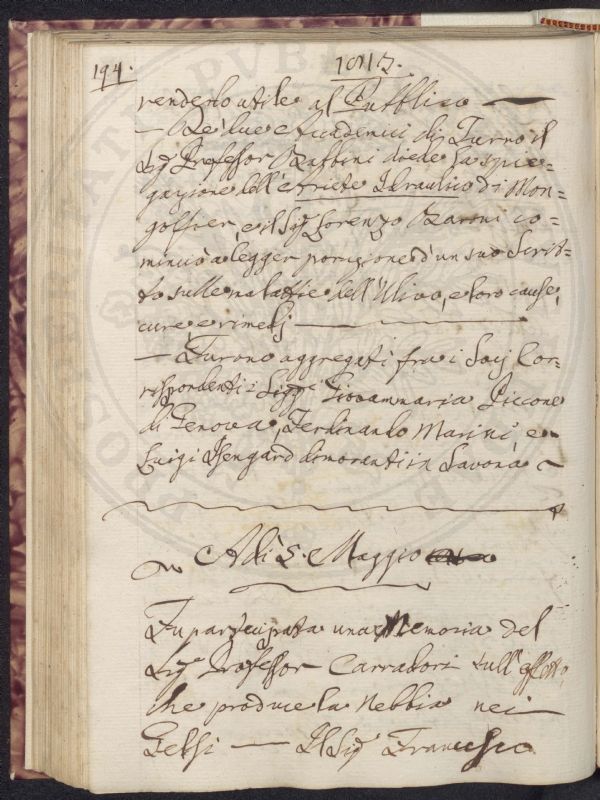 194.
renderlo utile al Pubblico —
— De' due Accademici di Turno il
Sig.r Professor Babbini diede la spie=
gazione dell'Ariete Idraulico di Mon=
golfier, e il Sig.r Lorenzo Baroni co=
minciò a legger porzione d'un suo Scrit=
to sulle malattie dell'Ulivo, e loro cause,
cure, e rimedj —
— Furono aggregati fra i Socj Cor=
rispondenti i Sigg.ri Giovammaria Piccone
di Genova, Ferdinando Marini e
Luigi Isengard dimoranti in Savona —
Adì Maggio
Fu partecipata una Memoria del
Sig.r Professor Carradori sull'effetto,
che produce la Nebbia nei
Gelsi — Il Sig.r Francesco